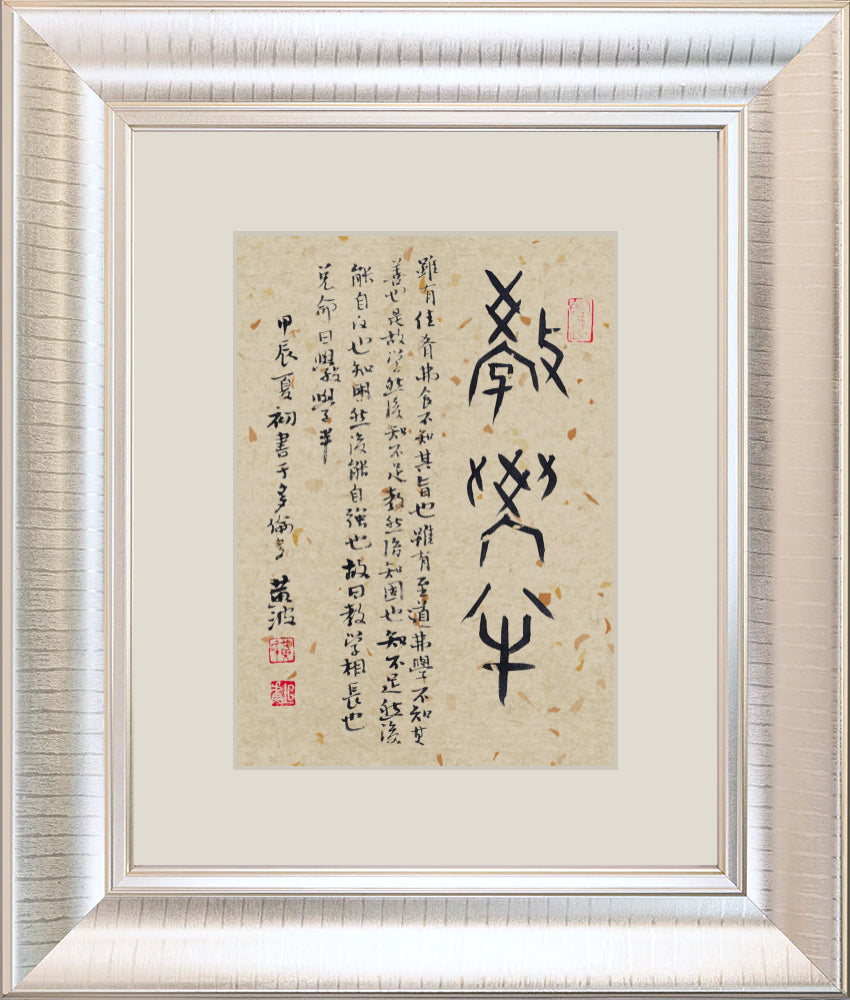 教學半
雖有佳肴弗食不知其旨也雖有至道弗學不知其
善也是故学然後知不足教然後知困也知不足然後
能自反也知困然後能自強也故曰教学相長也
兑命曰斆學半
甲辰夏初書于多倫多